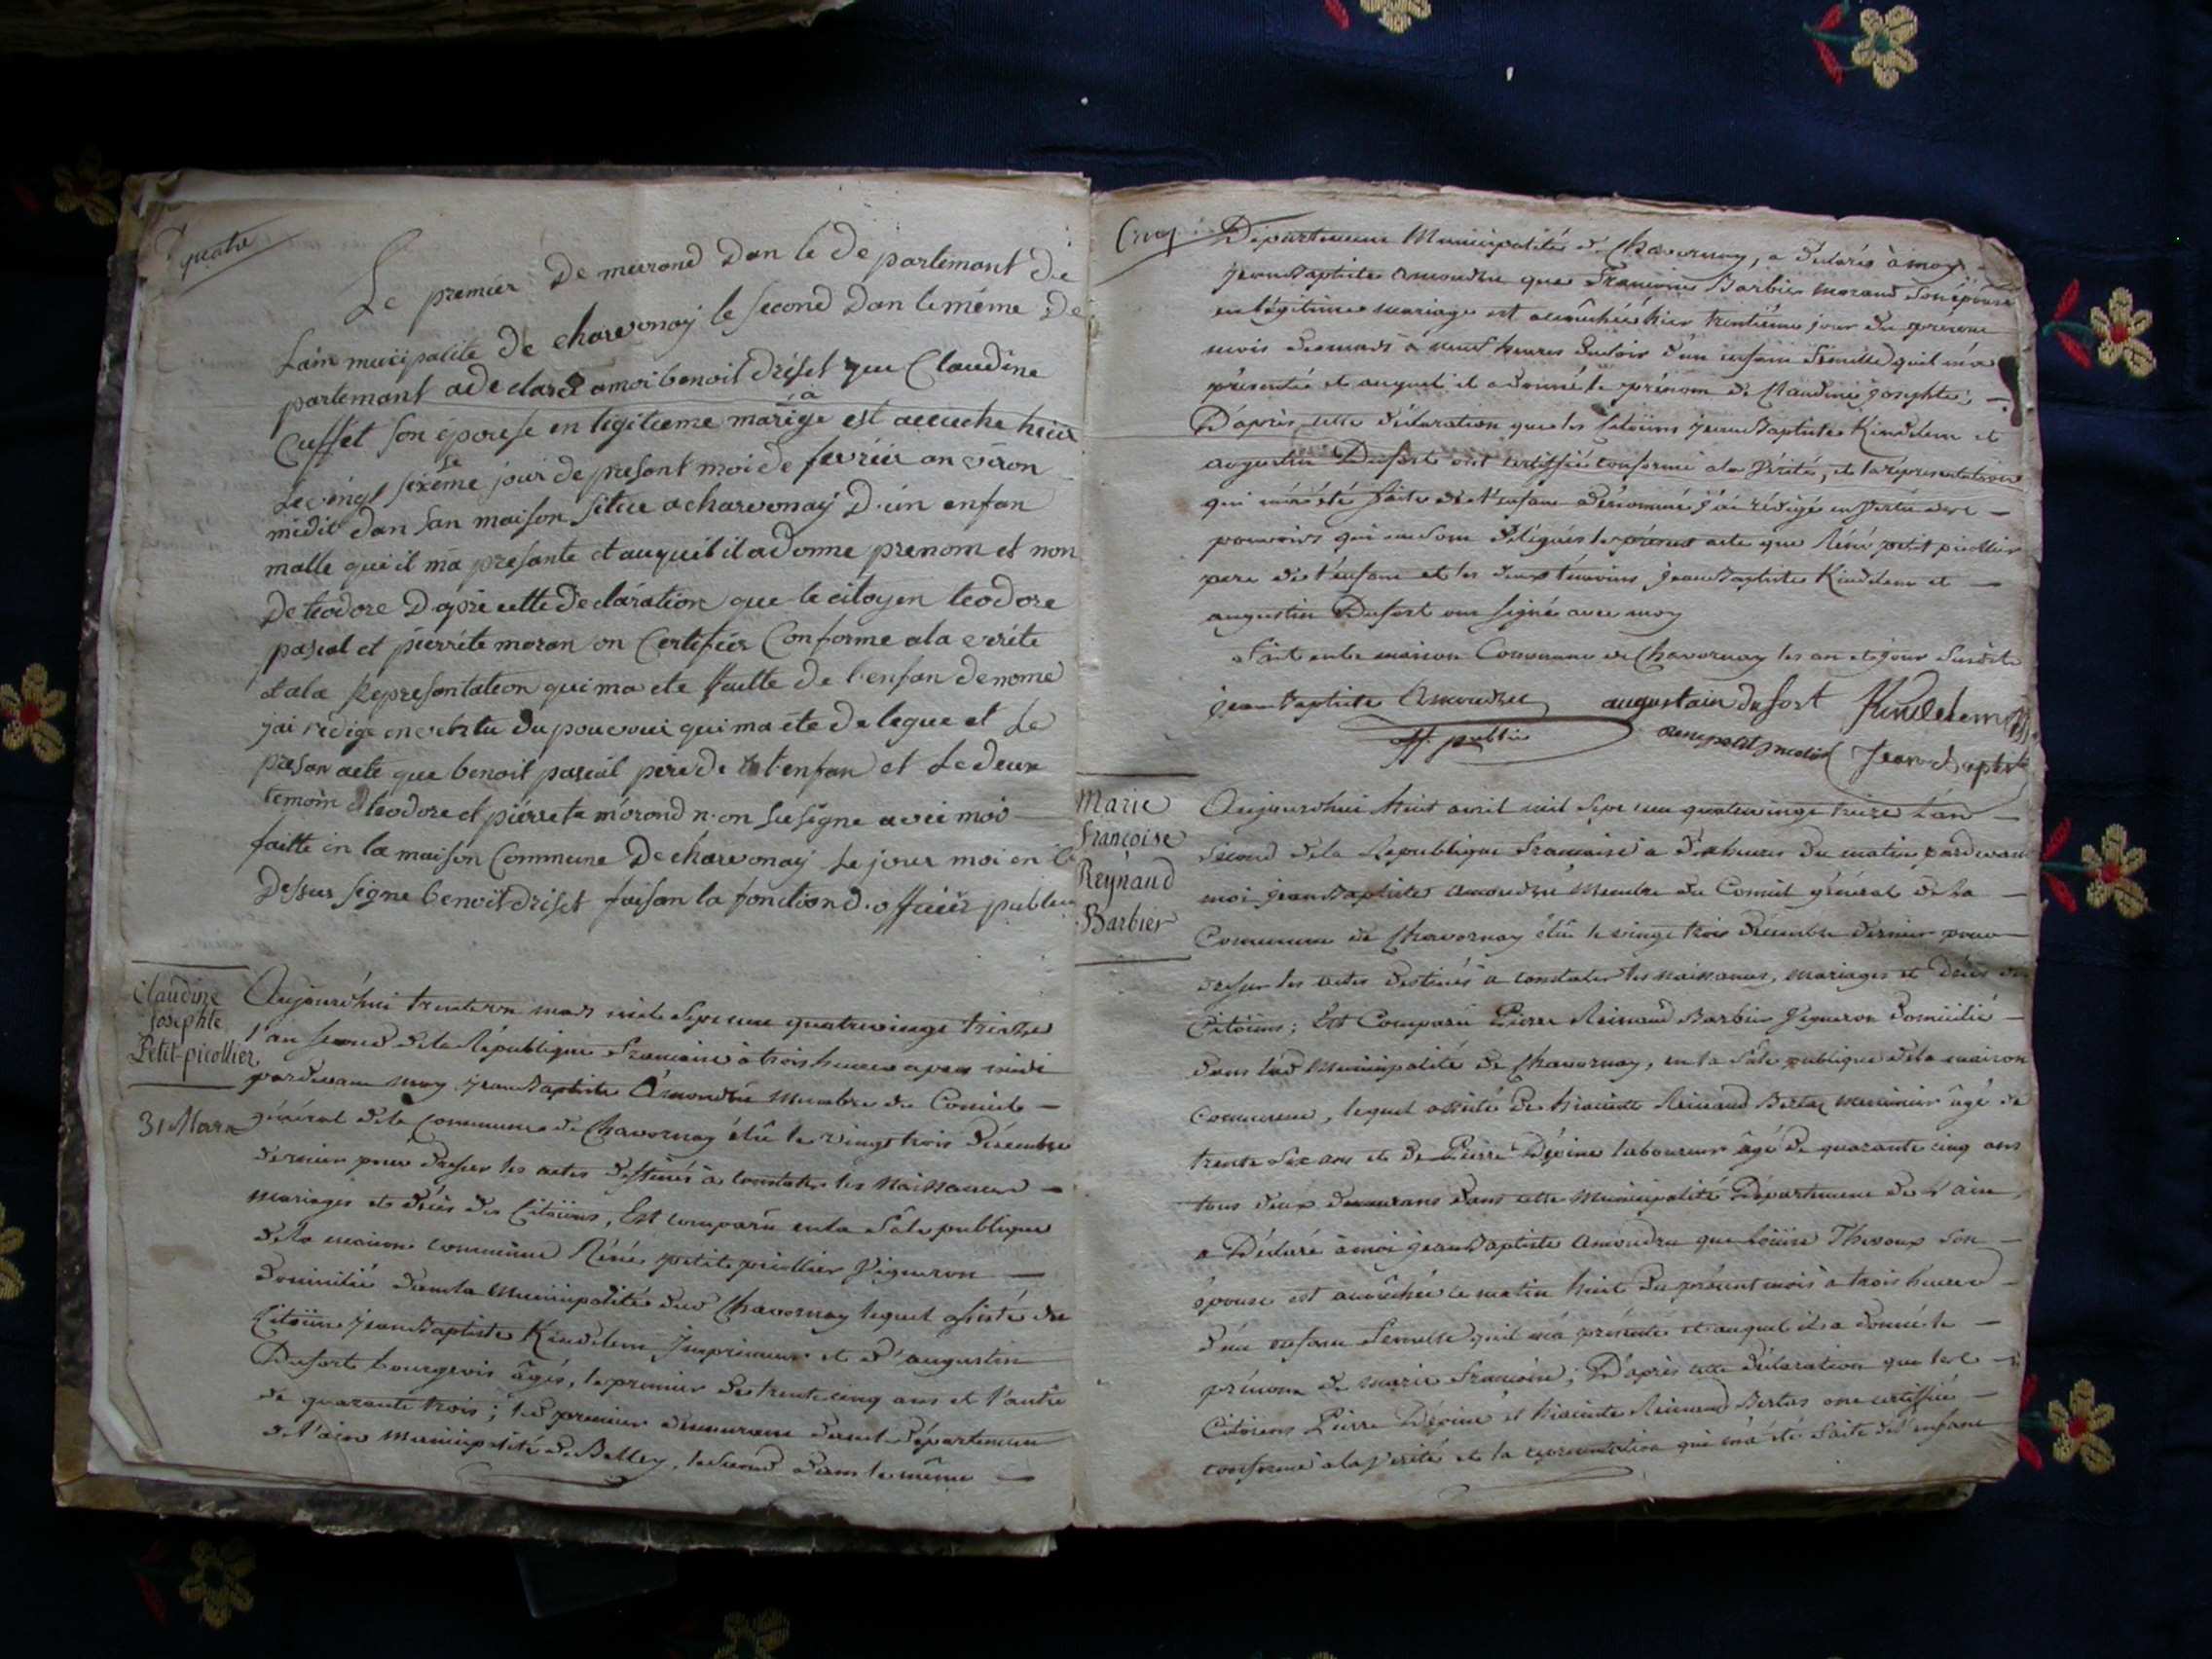 quatre
Le premier De meurond Dan le De partemant De
Lain mucipalite De charvonay le second Dan le méme De
partemant a de claré a moi benoit driset que Claudine
Cusset son épouse en legitieme marige est accuche heier
a
Le vingt sixeme jour de present moi de fevrier an viron
se
midit dan san maison situee a charvonay D'ún enfan
malle qui il ma presante et auqueil il a donne prenom et non
De teodore D'apré cette De claration que le citoyen teodore
pascal et pierrete moran on Certifier Conforme a la verite
et a la Representation qui ma ete faitte De l'enfan denome
j'ai redige en vertu du pouvoir qui ma ete de legue et Le
preson acte que benoit pascal pere de l'enfan et Le deux
temoin teodore et pierrete morond n'on sù signe avec moi
faitte en la maison Commune De charvonay Le jour moi en
Dessus signe benoit driset faisan la fonction d'officier public
Claudine
Josephte
Petit-picollier
31 Mars
Aujourdhui trente un mars mil sept cent quatre vingt treize
l'an second de la République Francaise à trois heures apres midi
pardevant moy jean Baptiste Amoudru membre du Conseil
général de la commune de Chavornay élû le vingt trois décembre
dernier pour dresser les actes destinés a constater les naissances
mariages et décès des Citoiens, Est comparû en la Sale publique
de la maison commune Réné petit picollier Vigneron
domicilié dans la municipalité dud Chavornay lequel assisté du
Citoiien jean Baptiste Kindelem Imprimeur et d'augustin
Dufort bourgeois âgés, le premier de trente cinq ans et l'autre
de quarante trois; led premier demeurant dans le Département
de l'ain Municipalité de Belley, le second dans le même
Cinq
Departement Municipalité de Chavornay, a déclaré à moy
jean Baptiste Amoudru que Francoise Barbier Morand son épouse
en légitime mariage est accouchée hier trentième jour du present
mois de mars à neuf heures du soir d'un enfant femelle quil m'a
présenté et auquel il a donné le prénom de Claudine josephte;
D'après cette déclaration que les Citoiiens jean Baptiste Kindelem et
augustin Dufort ont certiffié conforme a la Vérité, et la représentation
qui m'a été faite de l'enfant dénommé j'ai rédigé en vertu des
pouvoirs qui me sont délégués le présent acte que Réné petit picollier
pere de l'enfant et les deux témoins jean Baptiste Kindelem et
augustin Dufort ont signé avec moy
Fait en la maison Commune de Chavornay les an et jour susdits
jean Baptiste Amoudru augustain dufort Kindelem
off. public rene petit picolié Jean Baptiste
Marie
Françoise
Reynaud
Barbier
Aujourdhui huit avril mil sept cent quatre vingt treize L'an
second de la Republique Francaise a dix heures du matin pardevant
moi jean Baptiste amoudru membre du Conseil général de la
Commune de Chavornay élû le vingt trois décembre dernier pour
dresser les actes destinés a constater les naissances, mariages et décès des
Citoiiens; Est Comparû Pierre Reinaud Barbier Vigneron domicilié
dans lad Municipalité de Chavornay, en la Sale publique de la maison
Commune, lequel assisté de hiacinte Reinaud Bertaz menuisier âgé de
trente six ans et de Pierre Dépine laboureur âgé de quarante cinq ans
tous deux demeurans dans cette Municipalité Département de L'ain,
a Déclaré à moi jean Baptiste amoudru que Loüise Thevoux son
épouse est accouchée ce matin huit du présent mois à trois heures
d'un enfant femelle quil m'a présenté et auquel il a donné le
prénom de marie Francoise; D'après cette déclaration que les
Citoiens Pierre Dépine et hiacinte Reinaud Bertas ont certiffié
conforme a la Vérité et la représentation qui m'a été faite de l'enfant